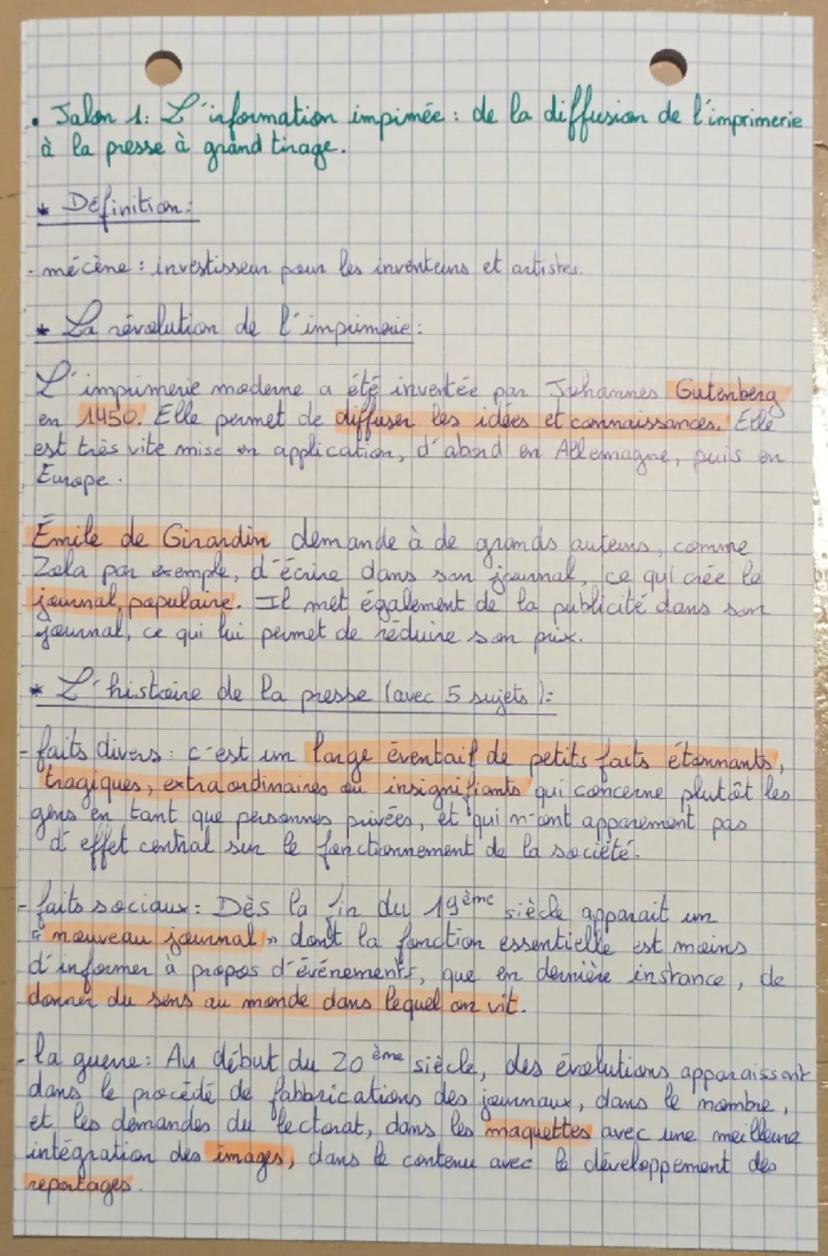 • Jalon 1: L'information impimée : de la diffusion de l'imprimerie
à la presse à grand tirage.
* Définition:
- mécène : investisseur pour les inventeurs et artistes.
* La révolution de l'imprimerie :
L'imprimerie moderne a été inventée par Johannes Gutenberg
en 1450. Elle permet de diffuser les idées et connaissances. Elle
est très vite mise en application, d'abord en Allemagne, puis en
Europe.
Émile de Girardin demande à de grands auteurs, comme
Zola par exemple, d'écrire dans son journal, ce qui crée le
journal populaire. Il met également de la publicité dans son
journal, ce qui lui permet de réduire son prix.
* L'histoire de la presse (avec 5 sujets ):
- faits divers : c'est un large éventail de petits faits étonnants,
tragiques, extraordinaires ou insignifiants qui concerne plutôt les
gens en tant que personnes privées, et qui n'ont apparement pas
d'effet central sur le fonctionnement de la société.
- faits sociaux : Dès la fin du 19ème siècle apparait un
" nouveau journal " dont la fonction essentielle est moins
d'informer à propos d'événements, que en dernière instance, de
donner du sens au monde dans lequel on vit.
- la guerre : Au début du 20ème siècle, des évolutions apparaissent
dans le procédé de fabbrications des journaux, dans le nombre,
et les demandes du lectorat, dans les maquettes avec une meilleure
intégration des images, dans le contenu avec le développement des
reportages.